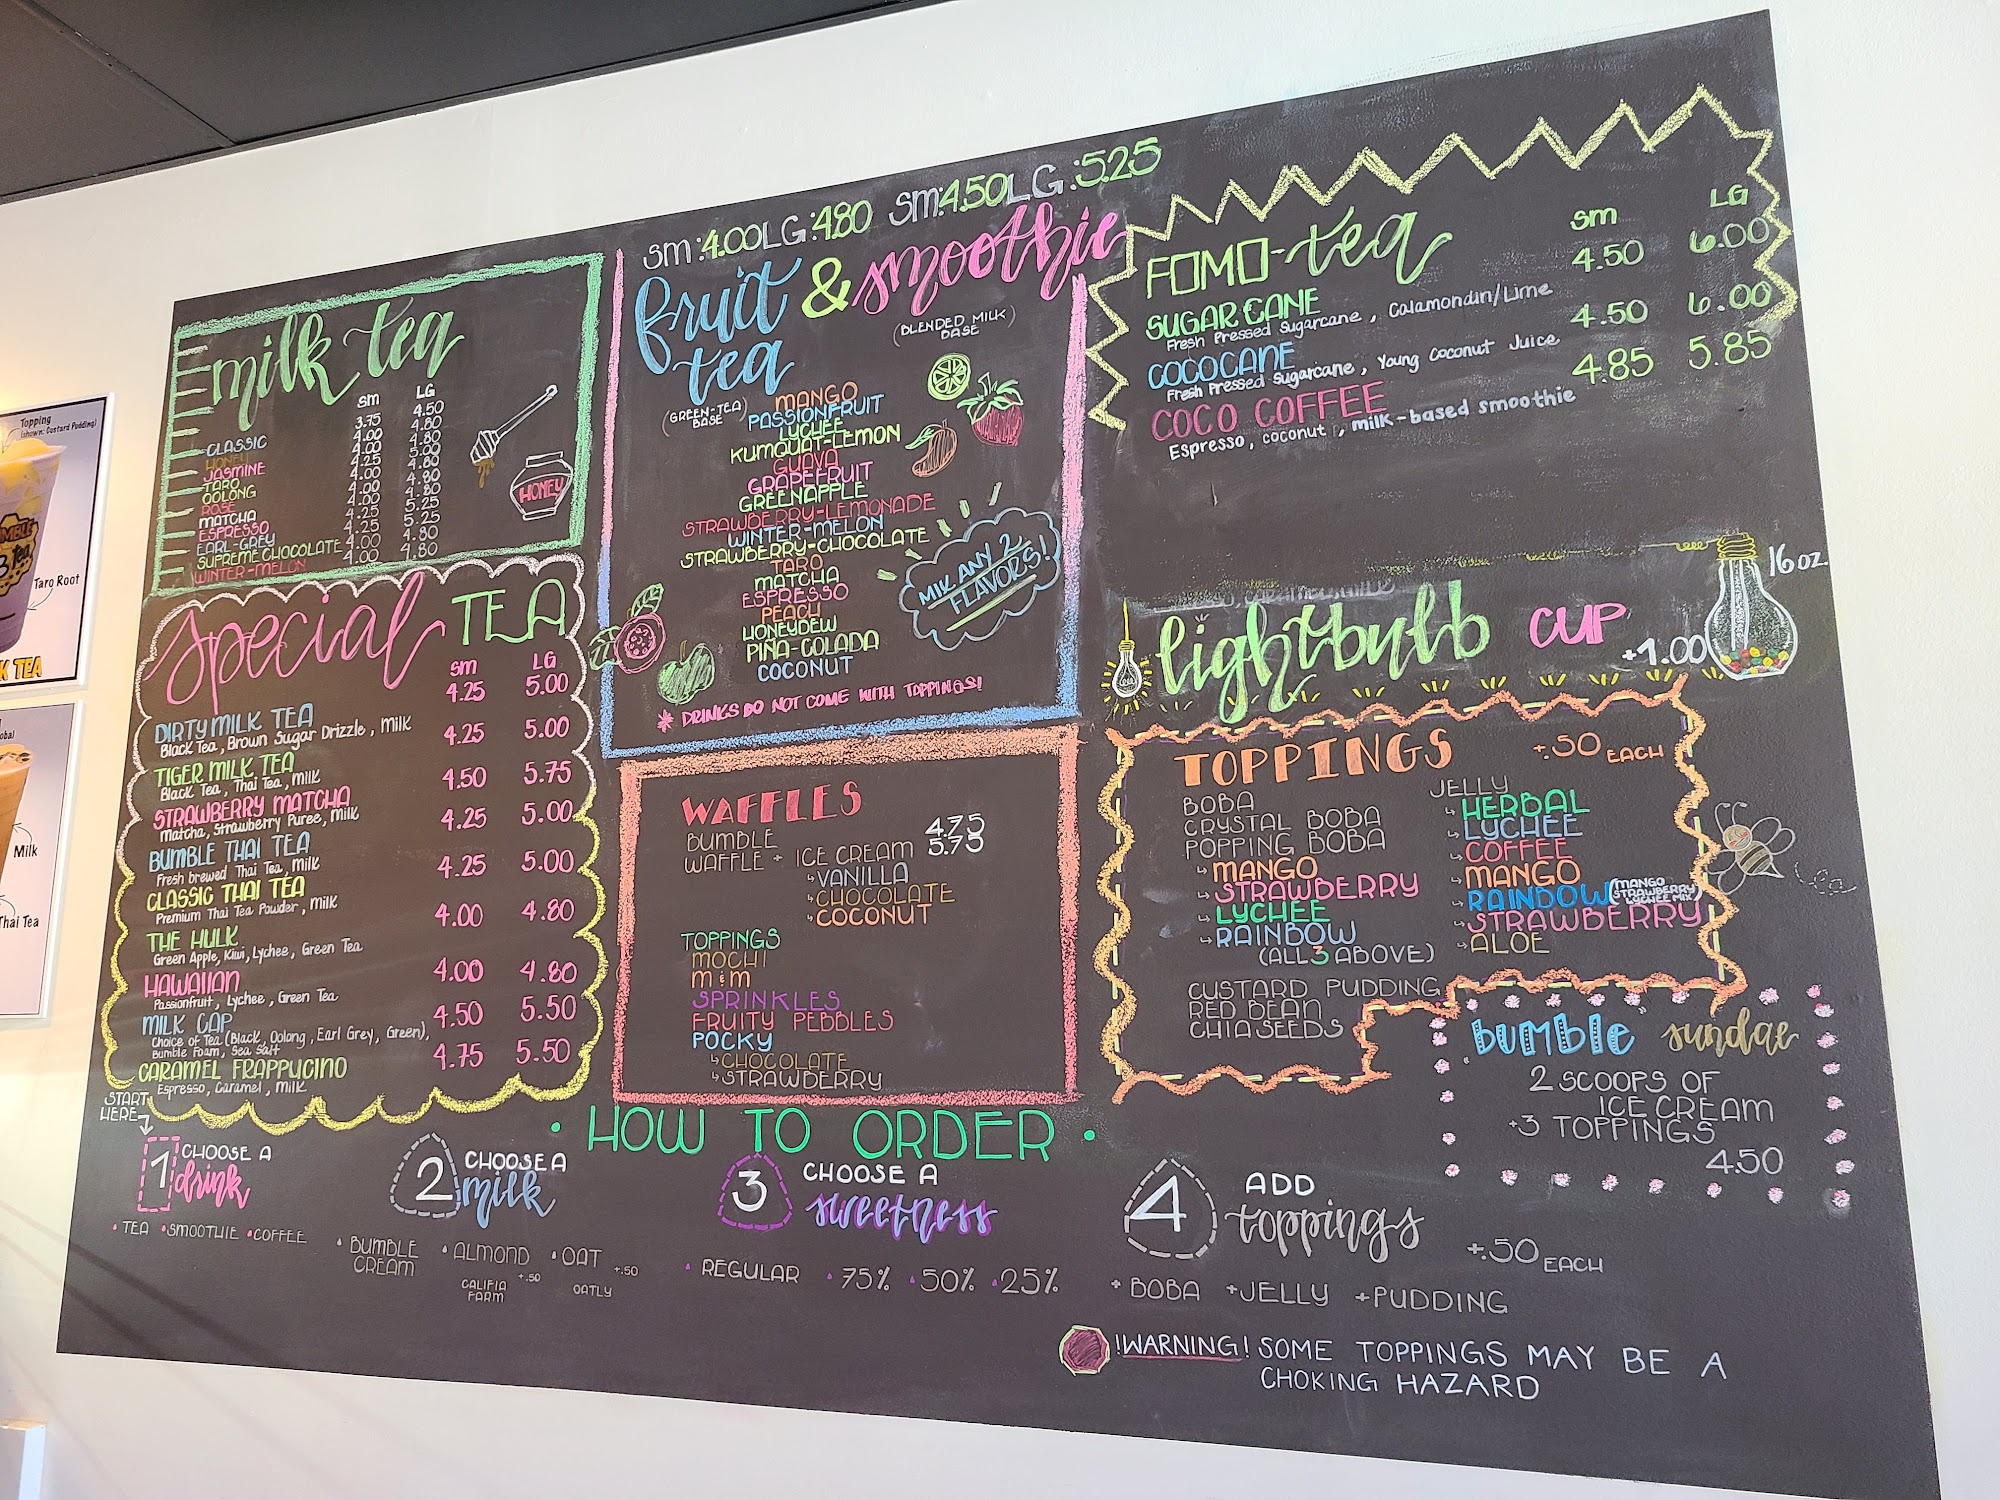 Topping
(shown: Custard Pudding)
Taro Root
K TEA
Milk
Thai Tea
milk tea
SM LG
3.75 4.50
4.00 4.80
4.00 4.80
4.25 5.00
4.00 4.80
4.00 4.80
4.00 4.80
4.25 5.25
4.25 5.25
4.00 4.80
4.00 4.80
CLASSIC
HONEY
JASMINE
TARO
OOLONG
ROSE
MATCHA
ESPRESSO
EARL-GREY
SUPREME CHOCOLATE
WINTER-MELON
HONEY
Special TEA
SM LG
4.25 5.00
DIRTY MILK TEA
Black Tea, Brown Sugar Drizzle, Milk
4.25 5.00
TIGER MILK TEA
Black Tea, Thai Tea, Milk
4.50 5.75
STRAWBERRY MATCHA
Matcha, Strawberry Puree, Milk
4.25 5.00
BUMBLE THAI TEA
Fresh brewed Thai Tea, Milk
4.25 5.00
CLASSIC THAI TEA
Premium Thai Tea Powder, Milk
4.00 4.80
THE HULK
Green Apple, Kiwi, Lychee, Green Tea
4.00 4.80
HAWAIIAN
Passionfruit, Lychee, Green Tea
4.50 5.50
MILK CAP
Choice of Tea (Black, Oolong, Earl Grey, Green),
Bumble Foam, Sea Salt
4.75 5.50
CARAMEL FRAPPUCINO
Espresso, Caramel, Milk
SM:4.00 LG:4.80 SM:4.50 LG:5.25
fruit & smoothie
tea
(GREEN-TEA)
BASE
(BLENDED MILK)
BASE
MANGO
PASSIONFRUIT
LYCHEE
KUMQUAT-LEMON
GUAVA
GRAPEFRUIT
GREENAPPLE
STRAWBERRY-LEMONADE
WINTER-MELON
STRAWBERRY-CHOCOLATE
TARO
MATCHA
ESPRESSO
PEACH
HONEYDEW
PIÑA-COLADA
COCONUT
MIX ANY 2
FLAVORS!
* DRINKS DO NOT COME WITH TOPPINGS!
WAFFLES
BUMBLE 4.75
WAFFLE + ICE CREAM 5.75
↳VANILLA
↳CHOCOLATE
↳COCONUT
TOPPINGS
MOCHI
M&M
SPRINKLES
FRUITY PEBBLES
POCKY
↳CHOCOLATE
↳STRAWBERRY
FOMO-tea SM LG
SUGAR CANE 4.50 6.00
Fresh Pressed Sugarcane, Calamondin/Lime
COCOCANE 4.50 6.00
Fresh Pressed Sugarcane, Young Coconut Juice
COCO COFFEE 4.85 5.85
Espresso, coconut, milk-based smoothie
lightbulb CUP +1.00
16 OZ.
TOPPINGS +.50 EACH
BOBA
CRYSTAL BOBA
POPPING BOBA
↳MANGO
↳STRAWBERRY
↳LYCHEE
↳RAINBOW
(ALL 3 ABOVE)
CUSTARD PUDDING
RED BEAN
CHIA SEEDS
JELLY
↳HERBAL
↳LYCHEE
↳COFFEE
↳MANGO
↳RAINBOW (MANGO STRAWBERRY LYCHEE MIX)
↳STRAWBERRY
↳ALOE
bumble sundae
2 SCOOPS OF
ICE CREAM
+3 TOPPINGS
4.50
• HOW TO ORDER •
START
HERE
1 CHOOSE A
drink
• TEA • SMOOTHIE • COFFEE
2 CHOOSE A
milk
• BUMBLE CREAM • ALMOND +.50 • OAT +.50
CALIFIA FARM OATLY
3 CHOOSE A
sweetness
• REGULAR • 75% • 50% • 25%
4 ADD
toppings
+.50 EACH
+ BOBA + JELLY + PUDDING
!WARNING! SOME TOPPINGS MAY BE A
CHOKING HAZARD